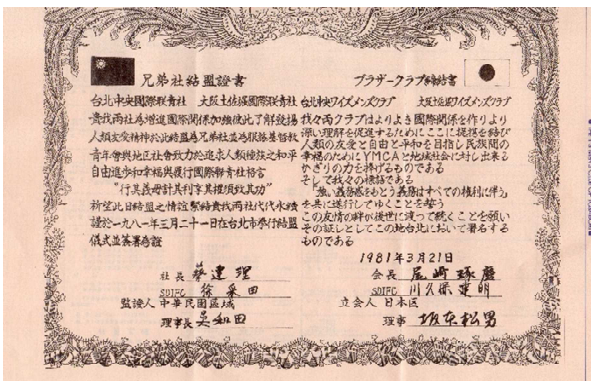 兄弟社結盟證書
台北中央國際聯青社 大阪土佐堀國際聯青社
貴我兩社為增進國際關係加強彼此了解發揚
人類友愛精神於此結盟為兄弟社並為服務基督教
青年會與地區社會致力於追求人類種族之和平
自由進步和幸福與履行國際聯青社格言
"行其義務計其利害其權須效其功"
祈望此日結盟之情誼緊結貴我兩社代代永續
謹於一九八一年三月二十一日在台北市舉行結盟
儀式並簽署為證
社長 蔡建理
SDIFC 徐采田
監證人 中華民國區域
理事長 吳和田
ブラザークラブ締結書
台北中央ワイズメンズクラブ 大阪土佐堀ワイズメンズクラブ
我々両クラブはよりよき国際関係を作りより
深い理解を促進するためにここに提携を結び
人類の友愛と自由と平和を目指し民族間の
幸福のためにYMCAと地域社会に対し出来る
かぎりの力を捧げるものである
そして我々の標語である
"強い義務感をもとう義務はすべての権利に伴う"
を共に遂行してゆくことを誓う
この友情の絆が後世に違って続くことを願い
その証しとしてこの地台北において署名する
ものである
1981年3月21日
会長 尾崎琢磨
SDIFC 川久保
立会人 日本区
理事 坂本松男